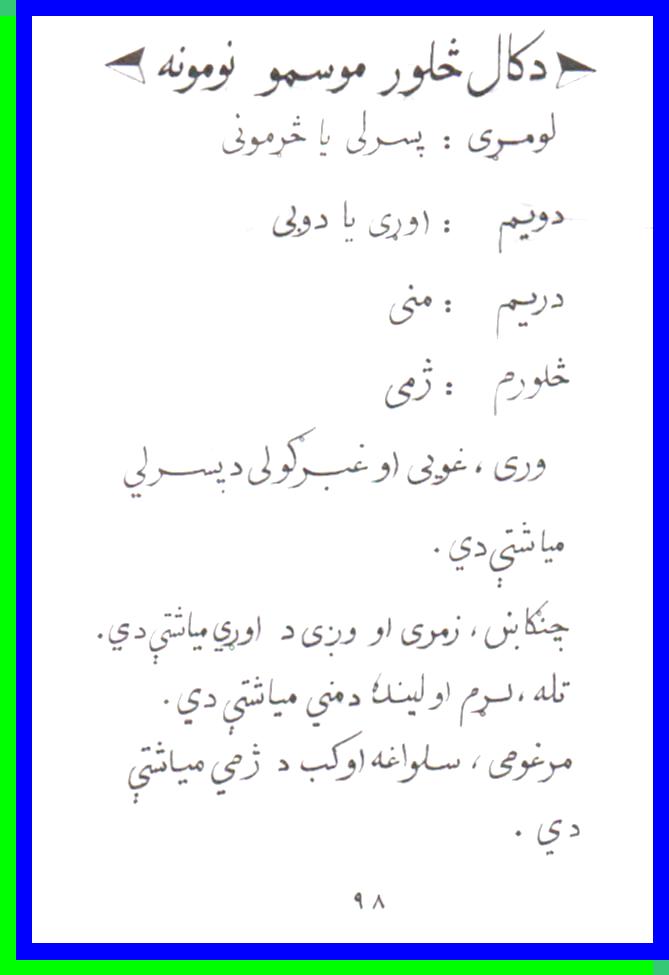 دکال څلور موسمو نومونه
لومړی : پسرلی یا څرمونی
دویم : اوړی یا دوبی
دریم : منی
څلورم : ژمی
وری ، غویی او غبرګولی دپسرلي
میاشتې دي .
چنګاښ ، زمری او وږی د اوړي میاشتې دي .
تله ، لړم او لیندۍ دمني میاشتې دي .
مرغومی ، سلواغه اوکب د ژمي میاشتې
دي .
۹۸